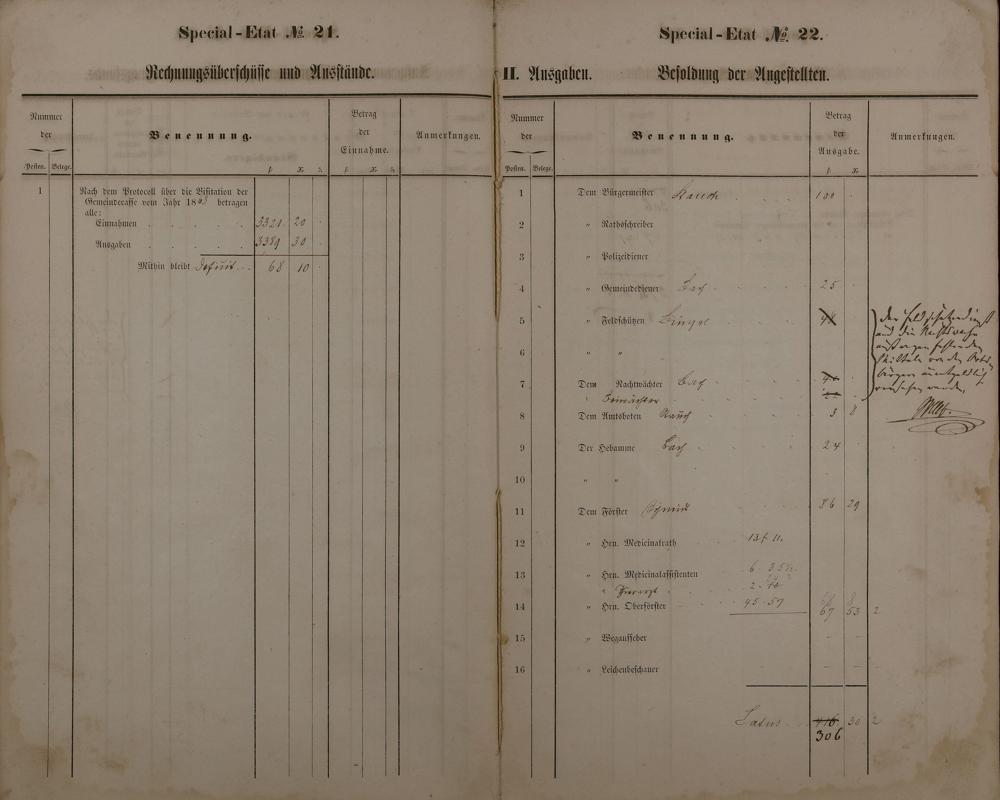 Special-Etat № 21.
Rechnungsüberschüsse und Ausstände.
Nummer der
Posten. Belege.
Benennung.
Betrag der Einnahme.
Anmerkungen.
f. x. f. x.
1 Nach dem Protocoll über die Visitation der
Gemeindecasse vom Jahr 1863 betragen
alle:
Einnahmen . . . . . 3321. 20
Ausgaben . . . . . 3389 30
Mithin bleibt Defizit 68 10
Special-Etat № 22.
II. Ausgaben. Besoldung der Angestellten.
Nummer der
Posten. Belege.
Benennung.
Betrag der Ausgabe.
Anmerkungen.
f. x.
1 Dem Bürgermeister Rauch 100
2 " Rathsschreiber
3 " Polizeidiener
4 " Gemeindediener Bach 25
5 " Feldschützen
6 " "
7 Dem Nachtwächter Bach
" Beiwächter
8 Dem Amtsboten Rauch 3 8
9 Der Hebamme Bach 24
10 " "
11 Dem Förster Schmid 86 29
12 " Hrn. Medicinalrath 13 f. 11.
13 " Hrn. Medicinalassistenten 6
" Thierarzt 2
14 " Hrn. Oberförster 45-57 67 53 2
15 " Wegaufseher
16 " Leichenbeschauer
der Feldschützendienst
und die Nachtwache
Mitteln von den Orts-
bürgern unentgeldlich
versehen werden.
Latus 416 30 2
306